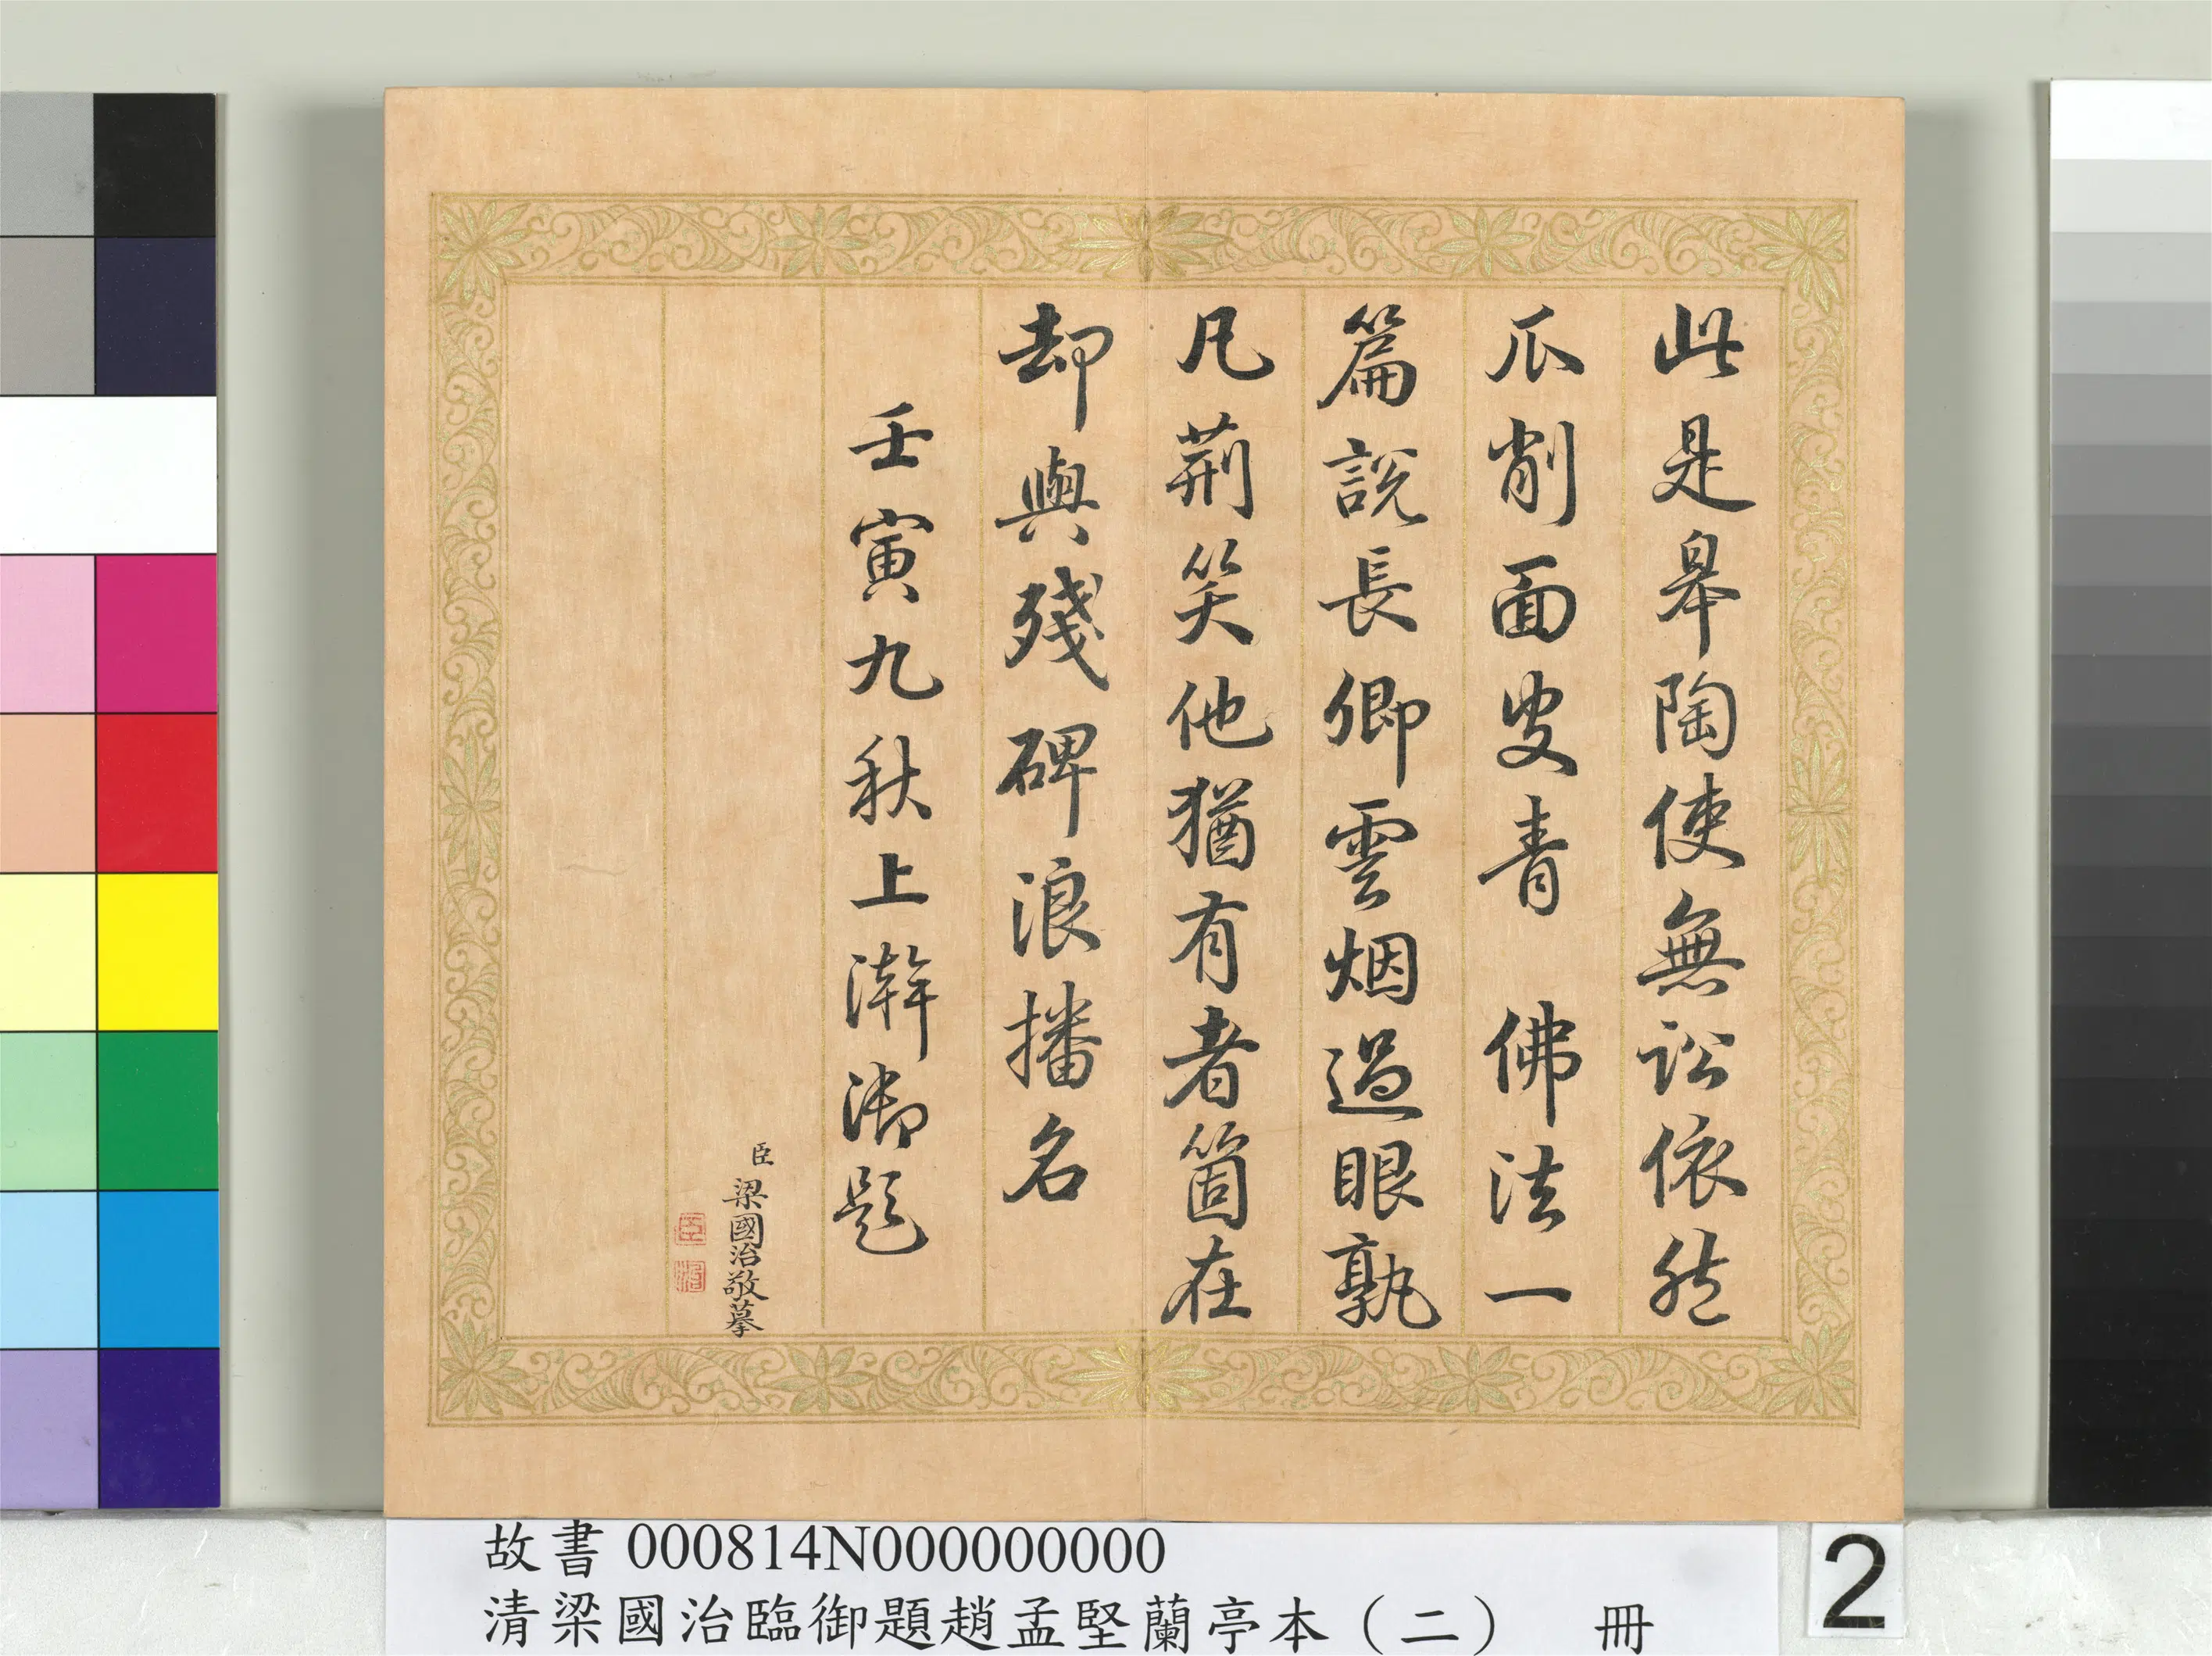 此是皋陶使無訟依然
爪削面叟青佛法一
篇説長卿雲烟過眼孰
凡荊笑他猶有者箇在
却與殘碑浪播名
壬寅九秋上澣御題
臣梁國治敬摹
臣
治
故書000814N000000000
清梁國治臨御題趙孟堅蘭亭本（二） 冊
2